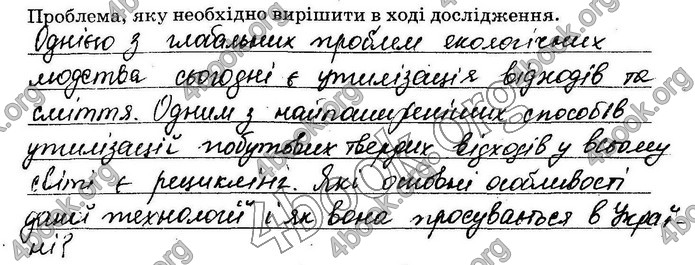 Проблема, яку необхідно вирішити в ході дослідження.
Однією з глобальних проблем екологічних
людства сьогодні є утилізація відходів та
сміття. Одним з найпоширеніших способів
утилізації побутових твердих відходів у всьому
світі є рециклінг. Які основні особливості
даної технології і як вона просувається в Украї-
ні?
4book.org